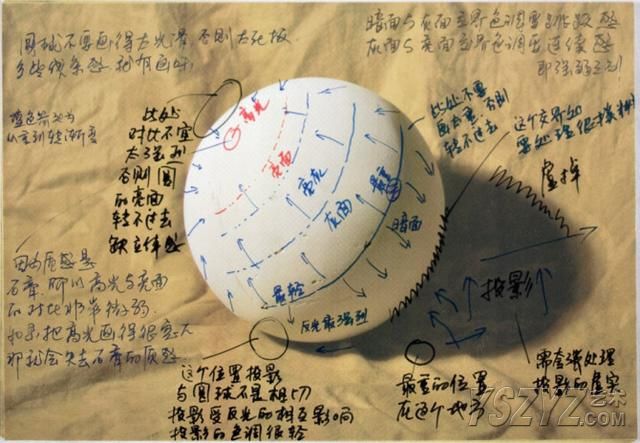 圆球不要画得太光滑 否则太死板
多些线条感 把有画味
暗面与灰面交界色调要
灰面与亮面交界色调要连续感
即强弱区别
蓝色箭头为
从重到轻渐变
此处
对比不宜
太强烈
否则圆
的亮面
转不过去
缺立体感
高光
亮面
亮灰
灰面
暗面
最轻
反光最强烈
此处不要
画太重,否则
转不过去
这个交界如
要处理很
虚掉
投影
因为质感是
石膏,所以高光与亮面
的对比非常微弱.
如果把高光画得很强大
那就会失去石膏的质感.
这个位置投影
与圆球不是相切
投影受反光的相互影响
投影的色调很轻
最重的位置
在这个地方
需要强处理
投影的虚实
YSZYZ.艺术
.COM